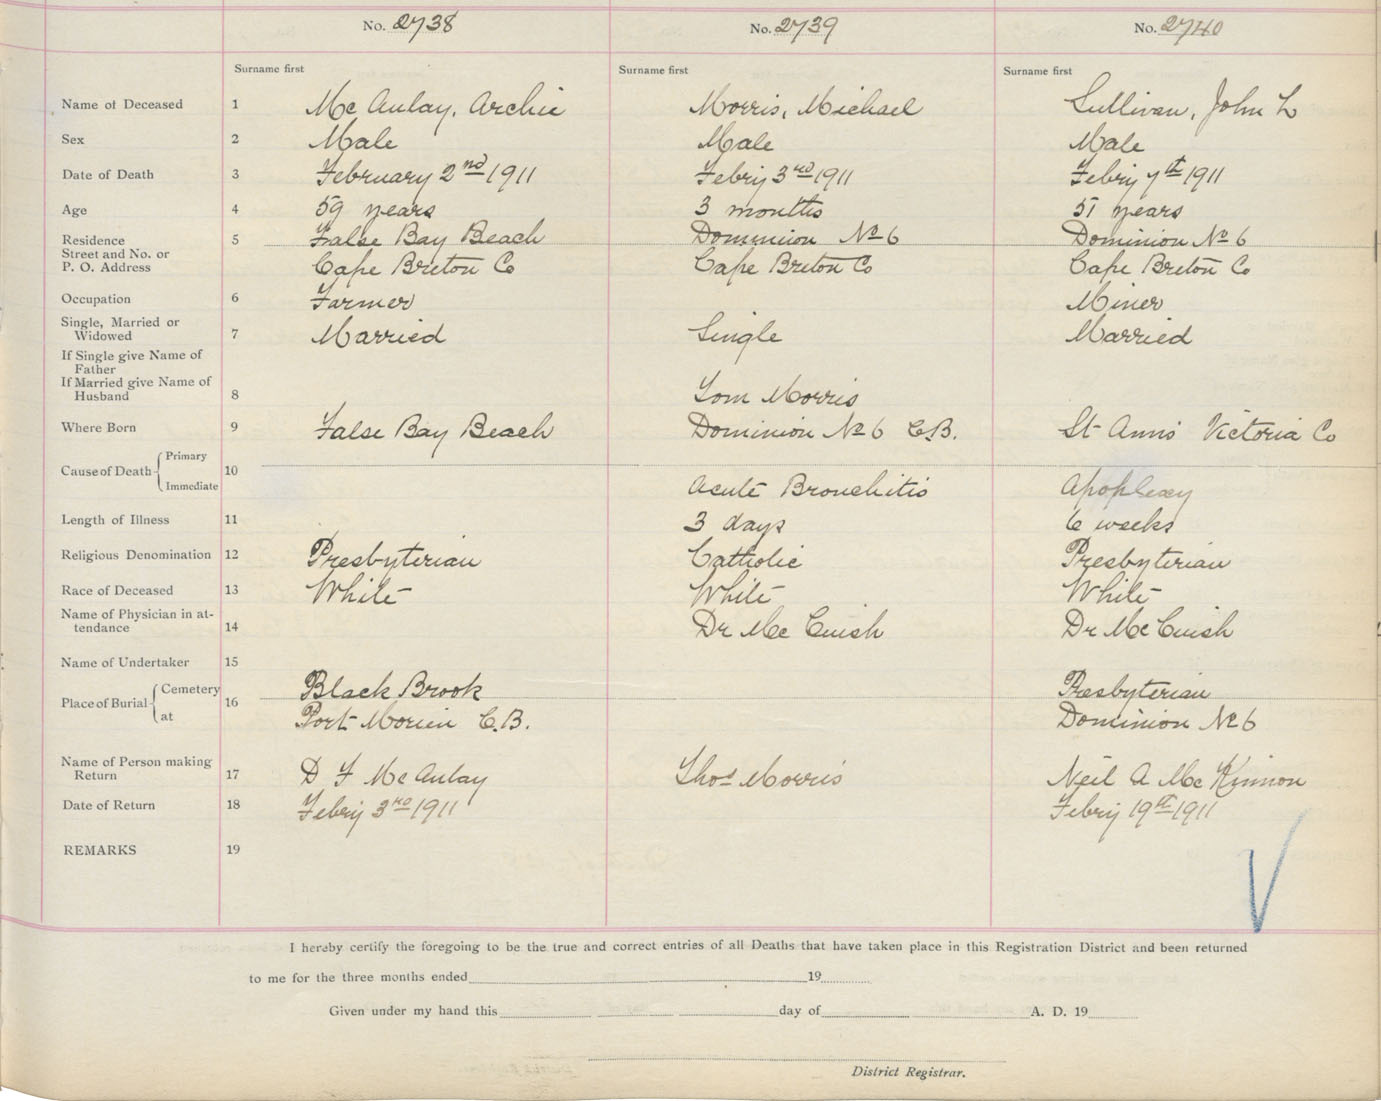 No. 2738 No. 2739 No. 2740
Surname first Surname first Surname first
Name of Deceased 1 Mc Aulay, Archie Morris, Michael Sullivan, John L
Sex 2 Male Male Male
Date of Death 3 February 2nd 1911 Febry 3rd 1911 Febry 7th 1911
Age 4 59 years 3 months 51 years
Residence 5 False Bay Beach Dominion No 6 Dominion No 6
Street and No. or
P. O. Address Cape Breton Co Cape Breton Co Cape Breton Co
Occupation 6 Farmer Miner
Single, Married or
Widowed 7 Married Single Married
If Single give Name of
Father
If Married give Name of
Husband 8 Tom Morris
Where Born 9 False Bay Beach Dominion No 6 C.B. St Anns Victoria Co
Cause of Death Primary 10
Immediate Acute Bronchitis Apoplexy
Length of Illness 11 3 days 6 weeks
Religious Denomination 12 Presbyterian Catholic Presbyterian
Race of Deceased 13 White White White
Name of Physician in at-
tendance 14 Dr Mc Cuish Dr Mc Cuish
Name of Undertaker 15
Place of Burial Cemetery 16 Black Brook Presbyterian
at Port Morien C.B. Dominion No 6
Name of Person making
Return 17 D F Mc Aulay Thos Morris Neil A Mc Kinnon
Date of Return 18 Febry 3rd 1911 Febry 19th 1911
REMARKS 19
I hereby certify the foregoing to be the true and correct entries of all Deaths that have taken place in this Registration District and been returned
to me for the three months ended 19
Given under my hand this day of A. D. 19
District Registrar.